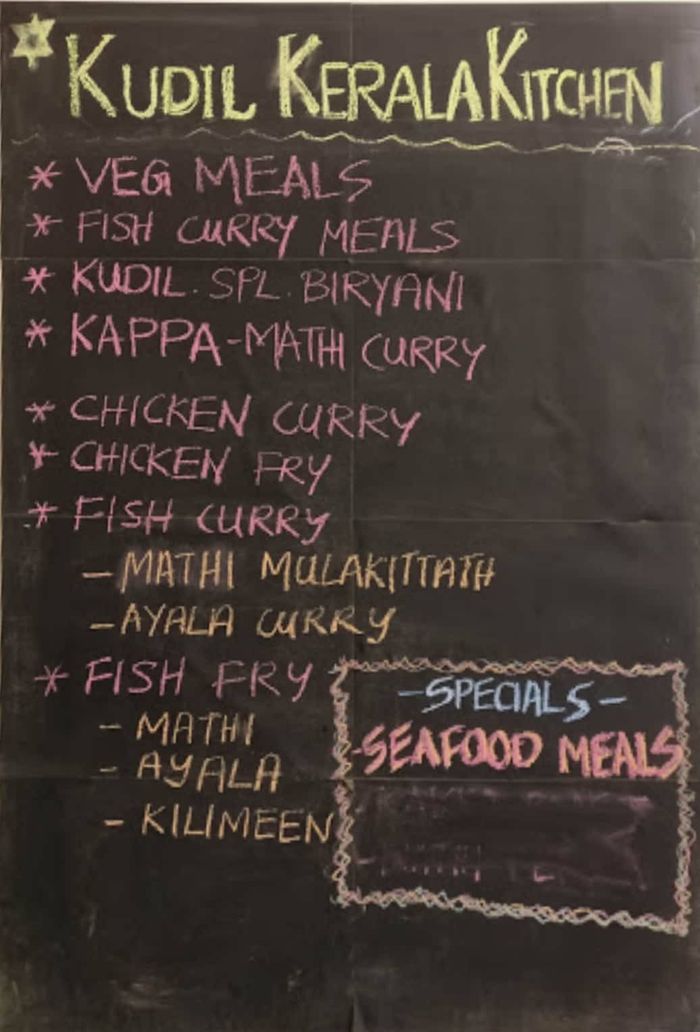 KUDIL KERALA KITCHEN
* VEG MEALS
* FISH CURRY MEALS
* KUDIL. SPL. BIRYANI
* KAPPA-MATH CURRY
* CHICKEN CURRY
* CHICKEN FRY
* FISH CURRY
- MATHI MULAKITTATH
- AYALA CURRY
* FISH FRY
- MATHI
- AYALA
- KILIMEEN
- SPECIALS -
- SEAFOOD MEALS